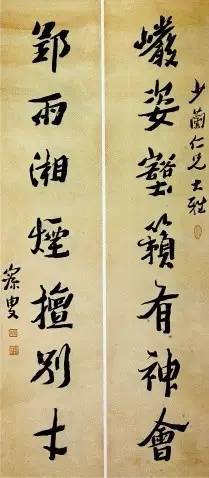 少蘭仁兄大雅
巖姿壑籟有神會
郢雨湘煙擅別才
寐叟